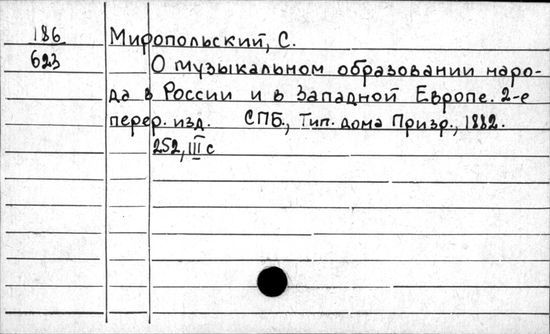 186 Миропольский, С.
623 О музыкальном образовании наро-
да в России и в Западной Европе. 2-е
перер. изд. СПБ., Тип. дома Призр., 1882.
252, III с